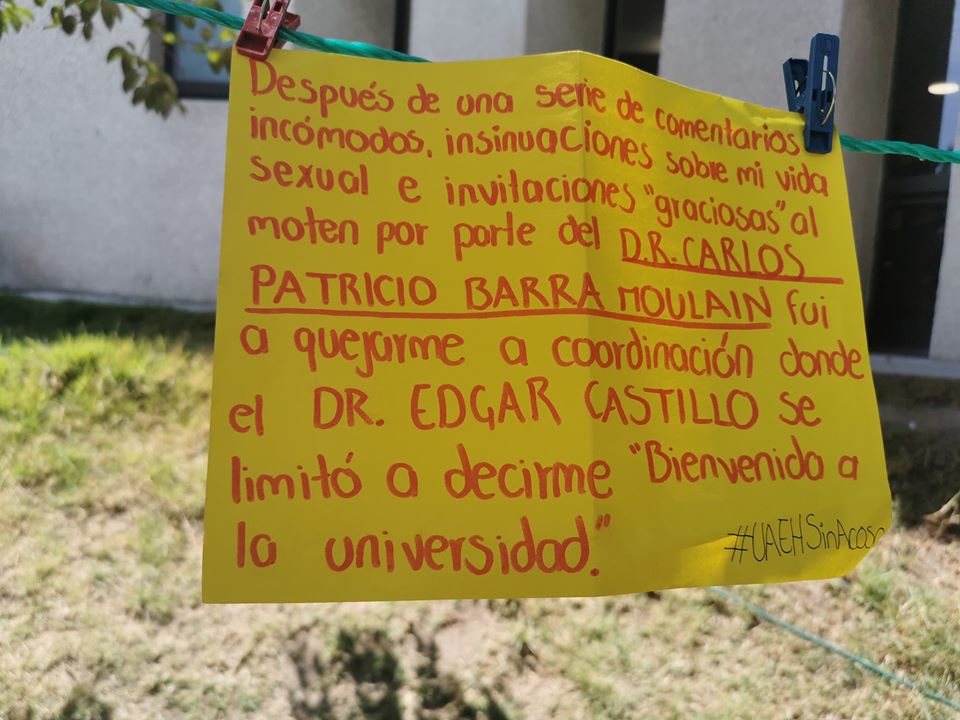 Después de una serie de comentarios
incómodos, insinuaciones sobre mi vida
sexual e invitaciones "graciosas" al
moten por parte del D.R. CARLOS
PATRICIO BARRA MOULAIN fui
a quejarme a coordinación donde
el DR. EDGAR CASTILLO se
limitó a decirme "Bienvenida a
la universidad."
#UAEHSinAcoso